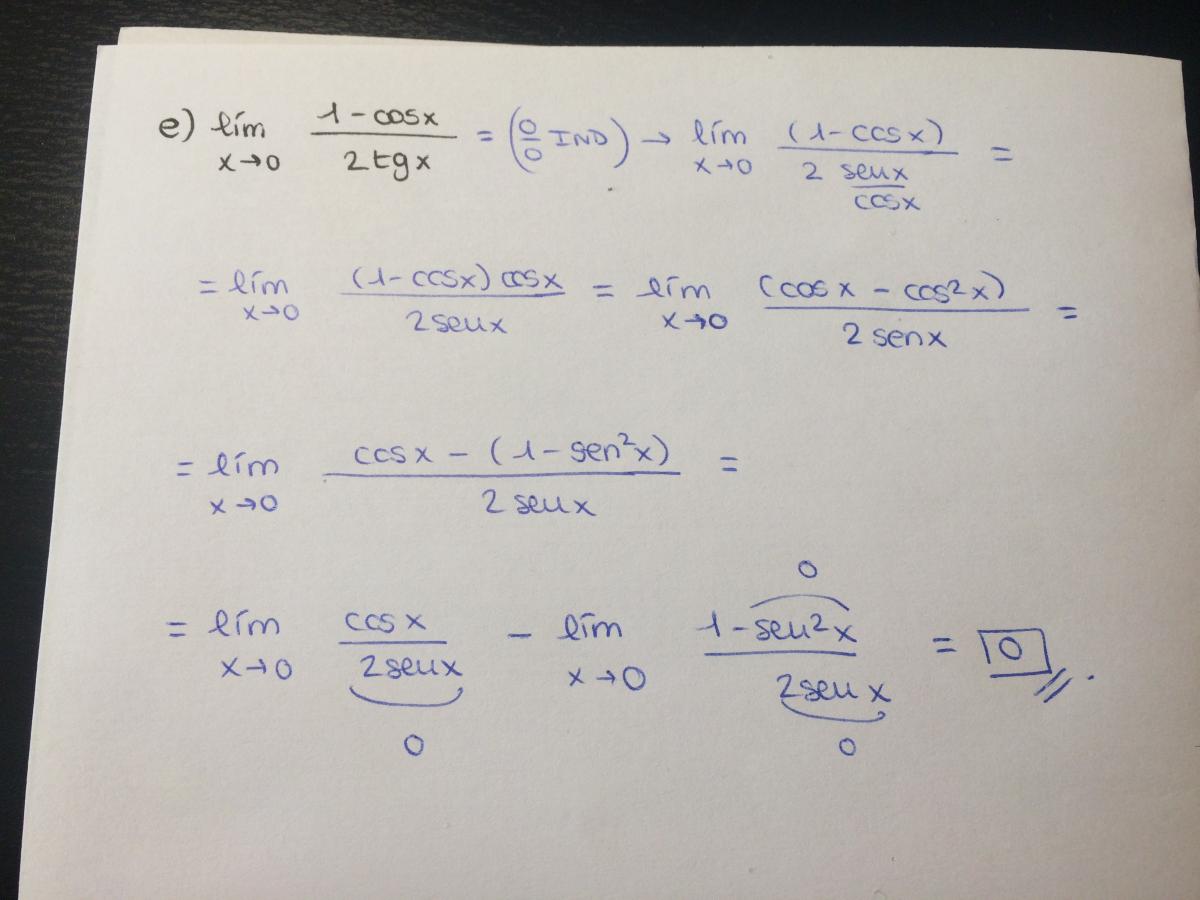 e) lím x→0 (1-cosx)/(2tgx) = (0/0 IND) → lím x→0 (1-cosx)/(2 senx/cosx) =
= lím x→0 ((1-cosx) cosx)/(2senx) = lím x→0 (cosx - cos²x)/(2 senx) =
= lím x→0 (cosx - (1-sen²x))/(2senx) =
0
= lím x→0 cosx/(2senx) - lím x→0 (1-sen²x)/(2senx) = 0 //.
0 0